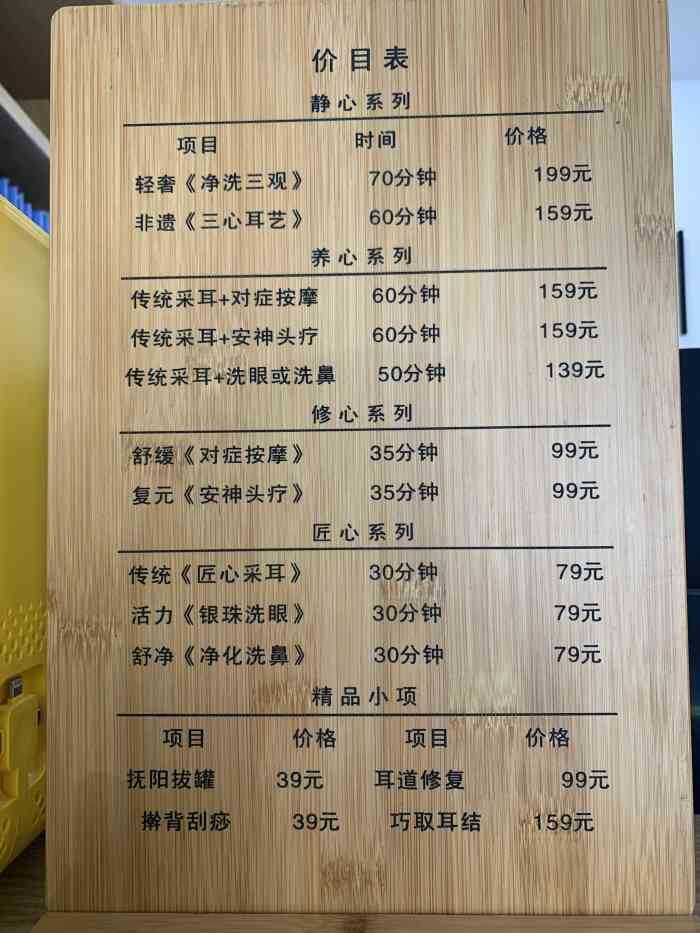 价目表
静心系列
项目 时间 价格
轻奢《净洗三观》 70分钟 199元
非遗《三心耳艺》 60分钟 159元
养心系列
传统采耳+对症按摩 60分钟 159元
传统采耳+安神头疗 60分钟 159元
传统采耳+洗眼或洗鼻 50分钟 139元
修心系列
舒缓《对症按摩》 35分钟 99元
复元《安神头疗》 35分钟 99元
匠心系列
传统《匠心采耳》 30分钟 79元
活力《银珠洗眼》 30分钟 79元
舒净《净化洗鼻》 30分钟 79元
精品小项
项目 价格 项目 价格
抚阳拔罐 39元 耳道修复 99元
擀背刮痧 39元 巧取耳结 159元